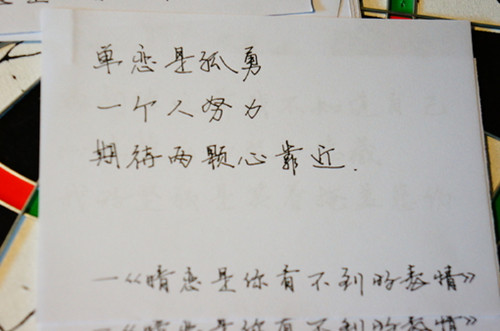 单恋是孤勇
一个人努力
期待两颗心靠近.
—《暗恋是你看不到的表情》
—《暗恋是你看不到的表情》